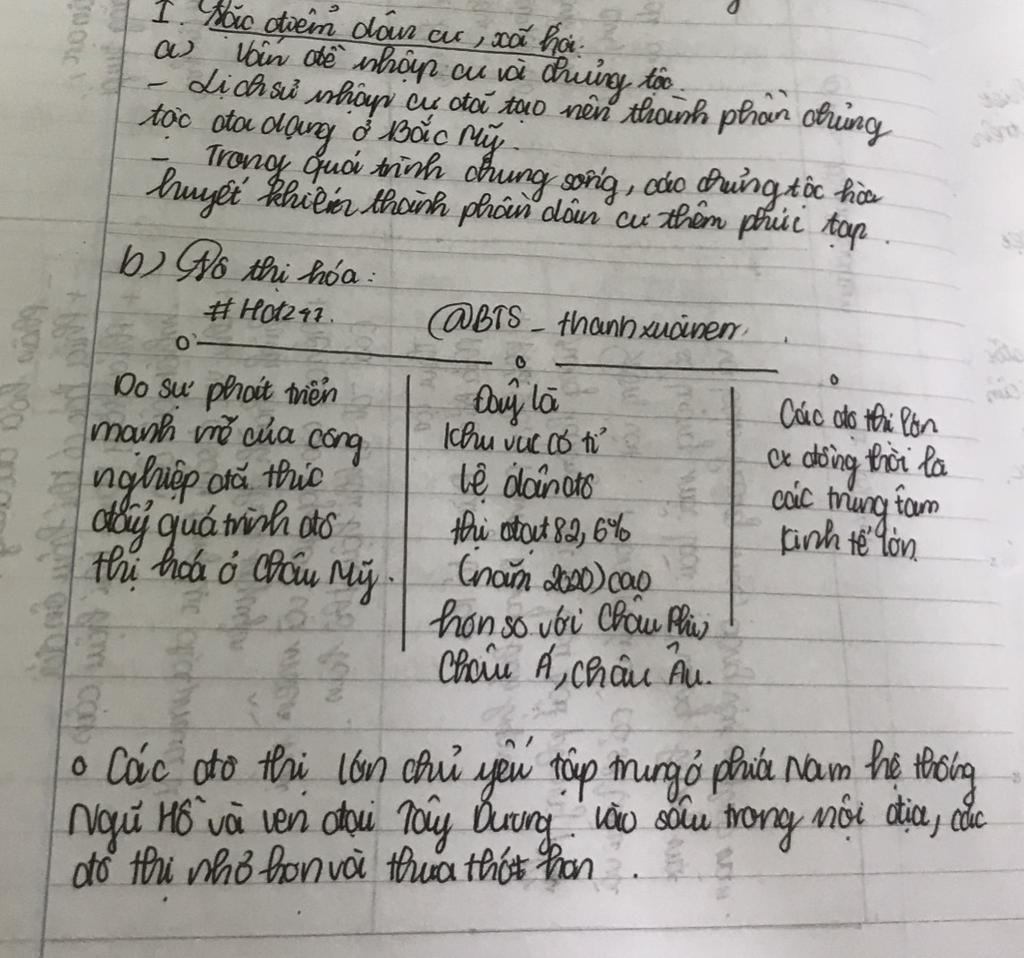 I. Đặc điểm dân cư, xã hội.
a) Vấn đề nhập cư và chủng tộc.
- Lịch sử nhập cư đã tạo nên thành phần chủng
tộc đa dạng ở Bắc Mỹ.
- Trong quá trình chung sống, các chủng tộc hòa
huyết khiến thành phần dân cư thêm phức tạp.
b) Đô thị hóa:
#Hot247. @BTS_thanhxuânen
Do sự phát triển
mạnh mẽ của công
nghiệp đã thúc
đẩy quá trình đô
thị hoá ở Châu Mỹ.
Đây là
khu vực có tỉ
lệ dân đô
thị đạt 82,6%
(năm 2020) cao
hơn so với Châu Phi,
Châu Á, Châu Âu.
Các đô thị lớn
cx đồng thời là
các trung tâm
kinh tế lớn.
o Các đô thị lớn chủ yếu tập trung ở phía Nam hệ thống
Ngũ Hồ và ven đại Tây Dương. vào sâu trong nội địa, các
đô thị nhỏ hơn và thưa thớt hơn.